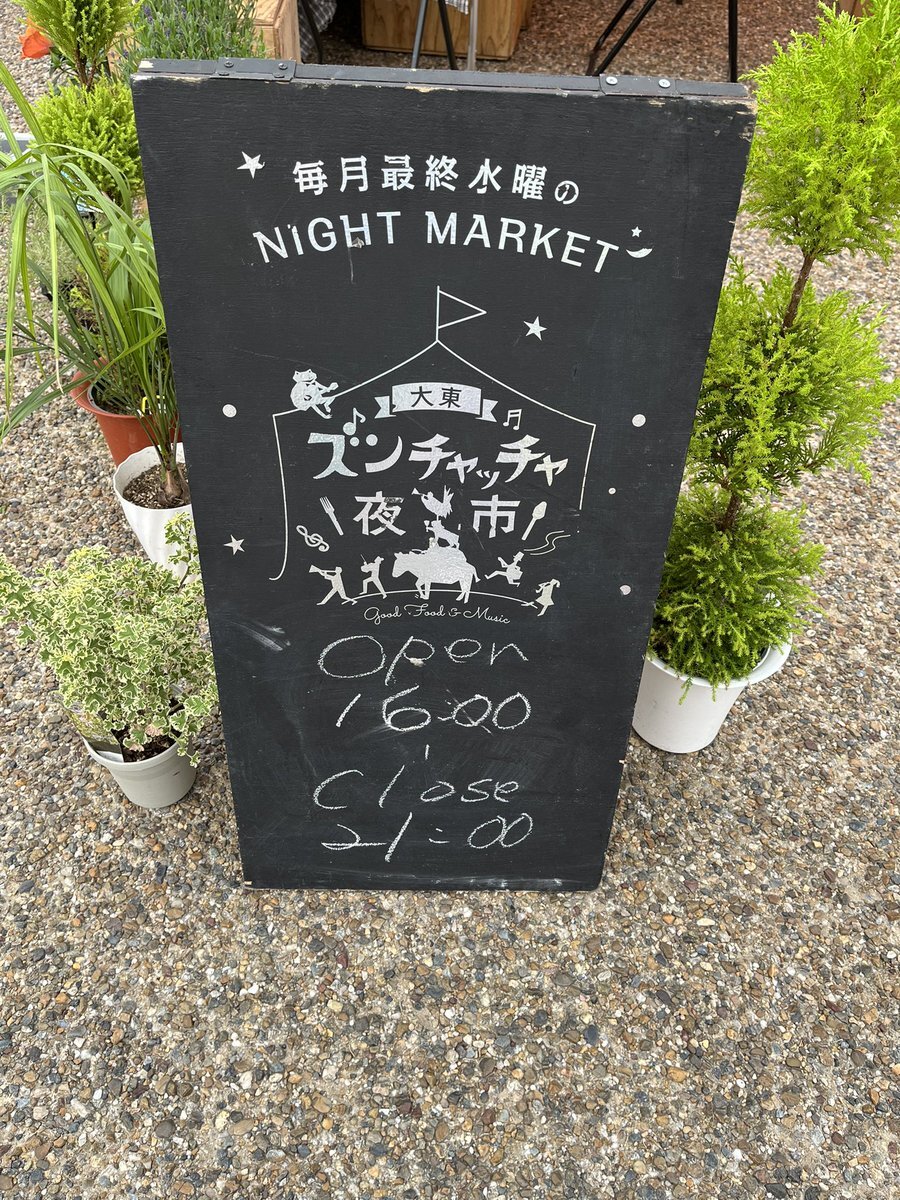 毎月最終水曜の
NIGHT MARKET
大東
ズンチャッチャ
夜市
Good Food & Music
Open
16:00
Close
21:00